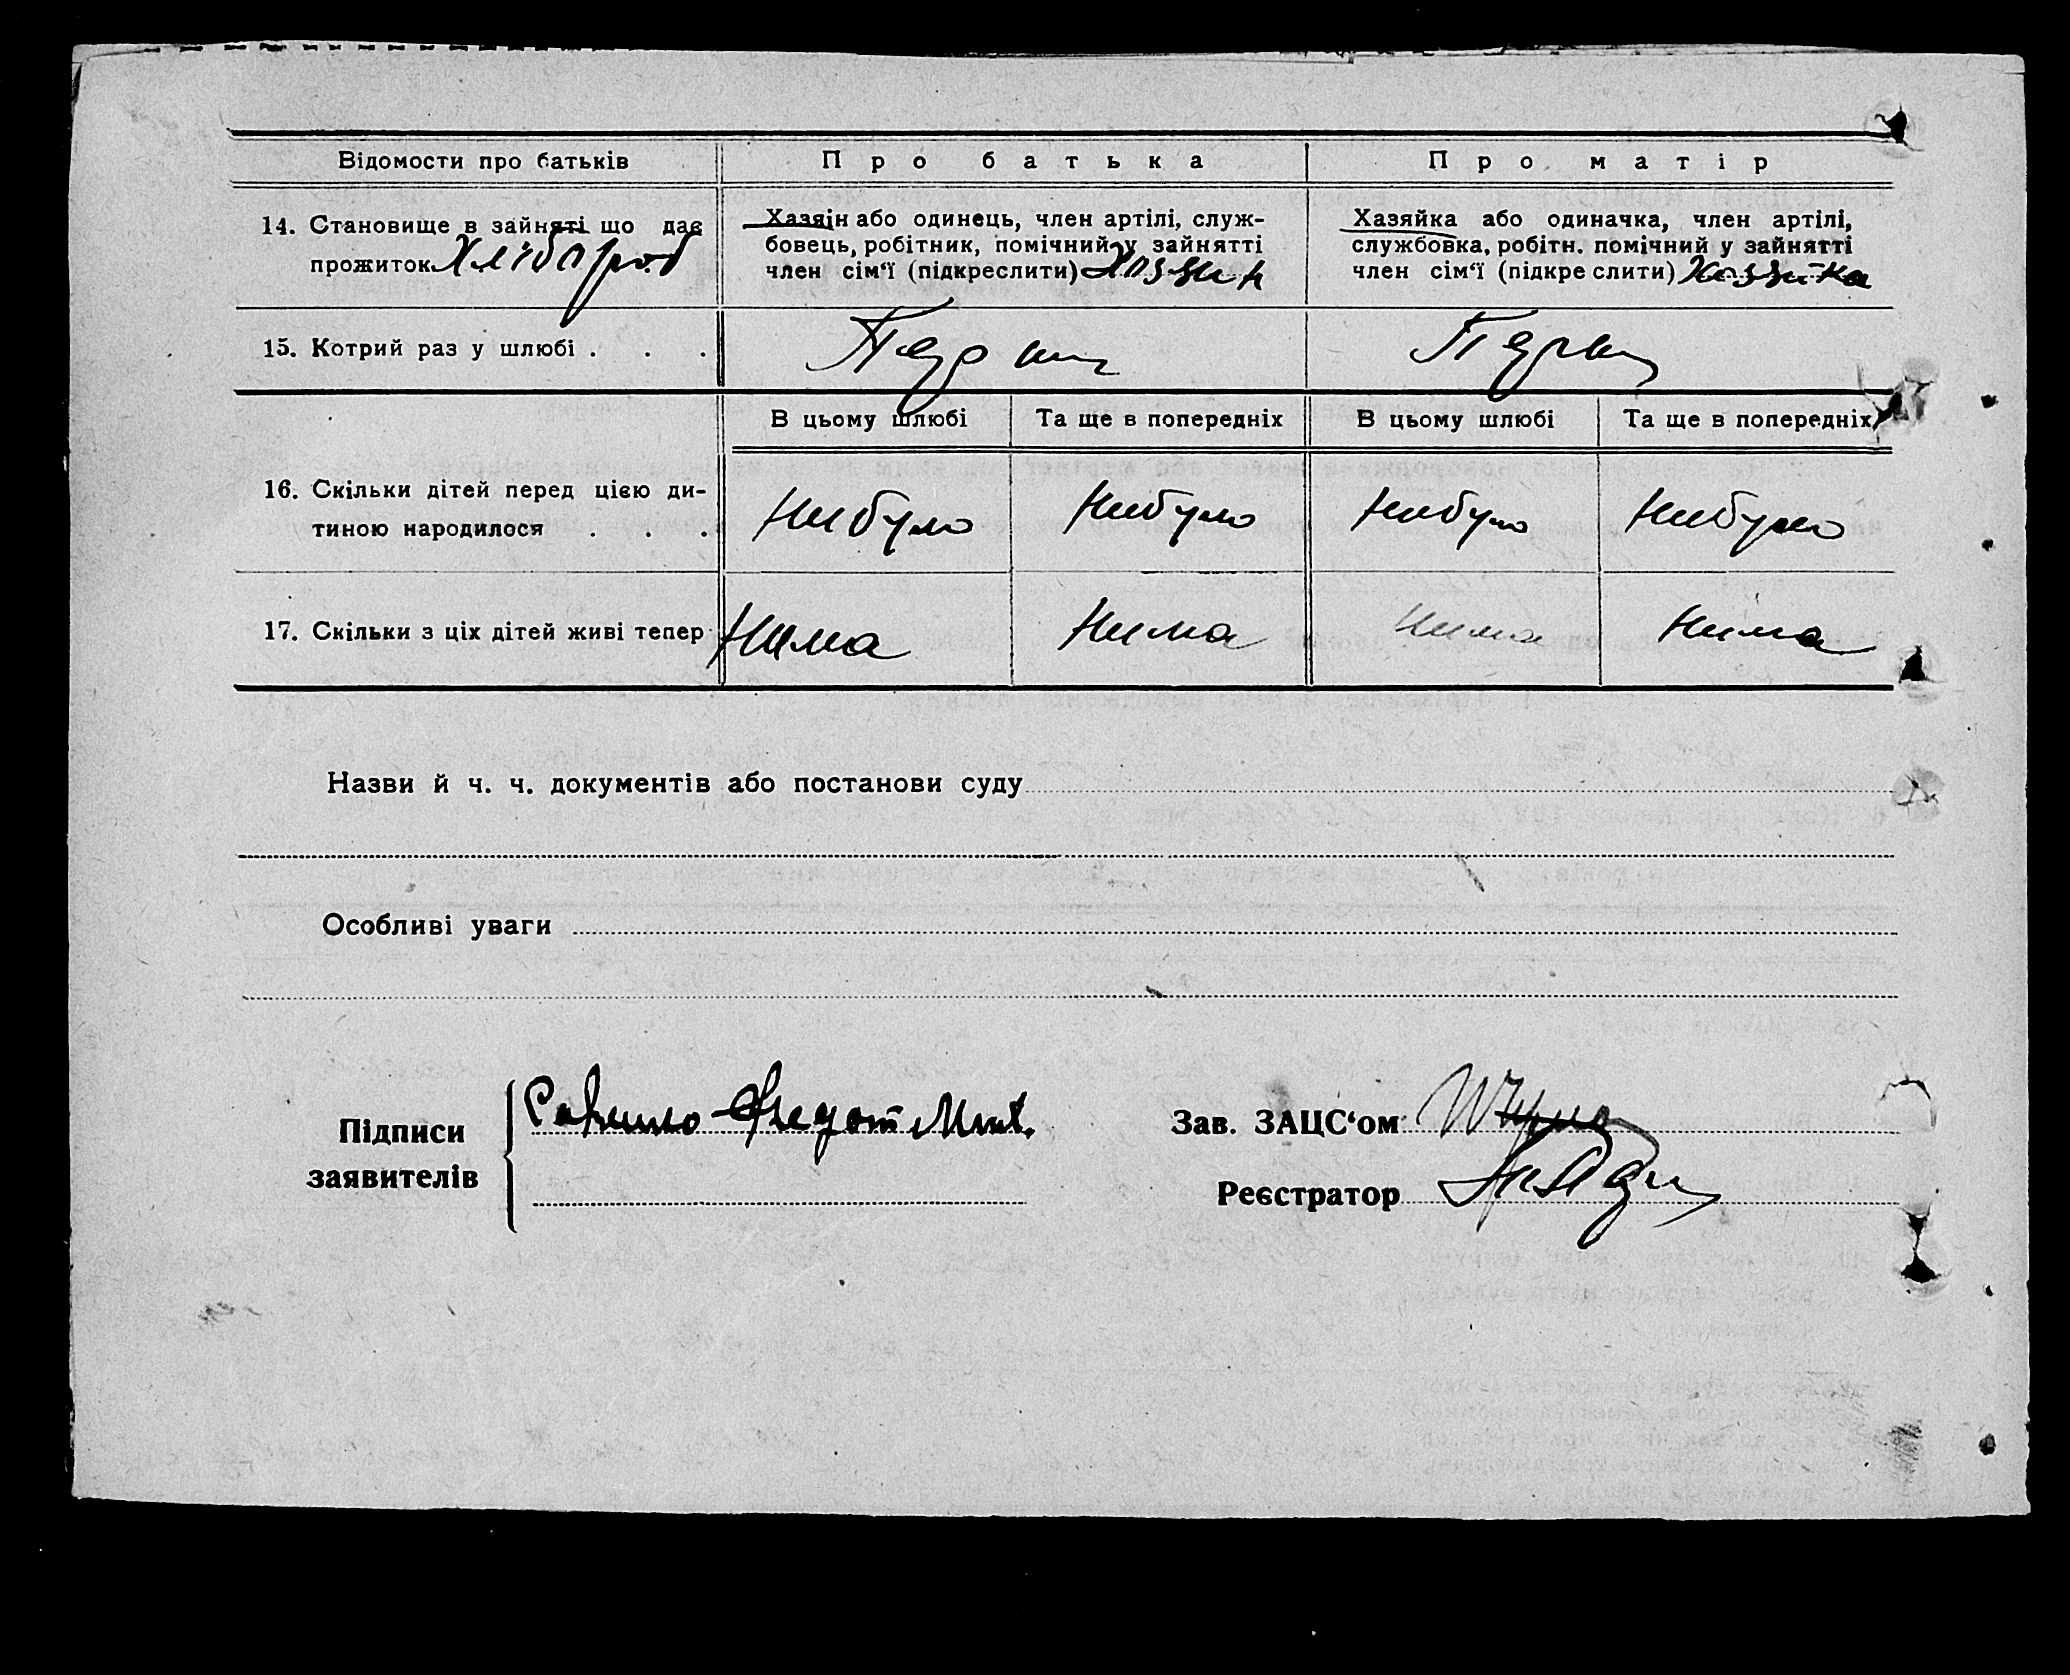 Відомости про батьків Про батька Про матір
14. Становище в зайняті що дає
прожиток Хлібороб
Хазяін або одинець, член артілі, служ-
бовець, робітник, помічний у зайнятті
член сім‘ї (підкреслити) Хозяин
Хазяйка або одиначка, член артілі,
службовка, робітн. помічний у зайнятті
член сім‘ї (підкреслити) Хозяйка
15. Котрий раз у шлюбі . . . Перши Перши
В цьому шлюбі Та ще в попередніх В цьому шлюбі Та ще в попередніх
16. Скільки дітей перед цією ди-
тиною народилося . . . Нибуло Нибуло Нибуло Нибуло
17. Скільки з ціх дітей живі тепер Нима Нима Нима Нима
Назви й ч. ч. документів або постанови суду
Особливі уваги
Підписи
заявителів
Федот
Зав. ЗАЦС‘ом
Реєстратор